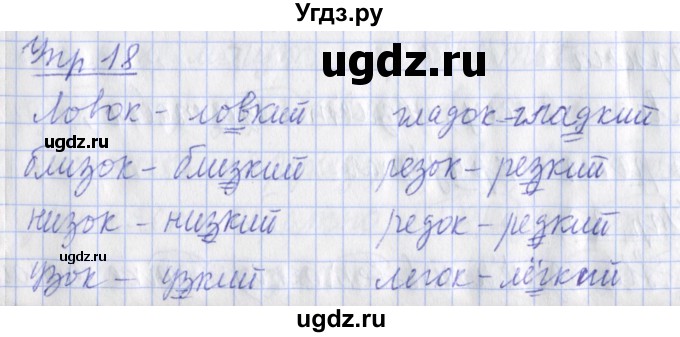 Угдз.ру
Упр 18
ugdz.ru
Ловок - ловкий гладок - гладкий
ugdz.ru
близок - близкий резок - резкий
ugdz.ru
низок - низкий редок - редкий
ugdz.ru
узок - узкий легок - лёгкий
ugdz.ru
ugdz.ru